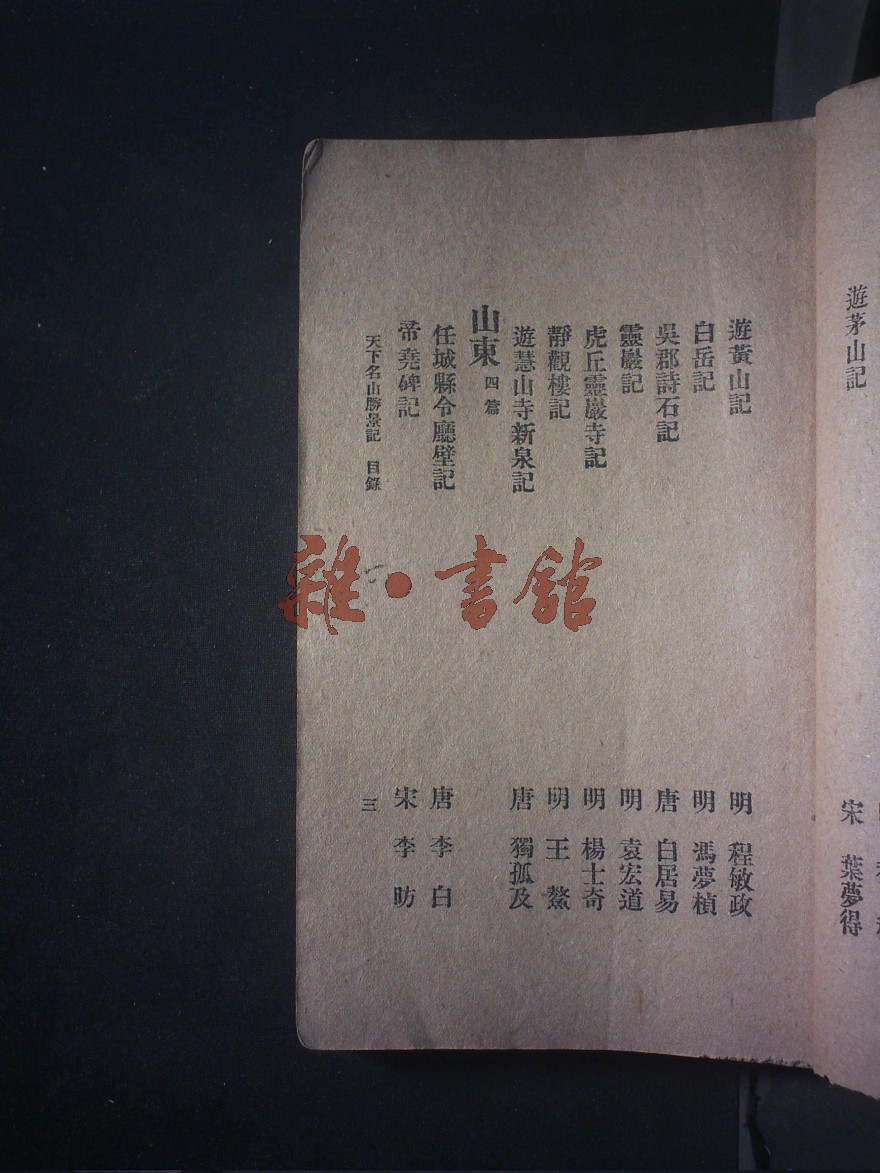 遊茅山記 宋 葉夢得
遊黃山記 明 程敏政
白岳記 明 馮夢楨
吳郡詩石記 唐 白居易
靈巖記 明 袁宏道
虎丘靈巖寺記 明 楊士奇
靜觀樓記 明 王鏊
遊慧山寺新泉記 唐 獨孤及
山東 四篇
任城縣令廳壁記 唐 李白
帝堯碑記 宋 李昉
天下名山勝景記 目錄 三
雜·書館